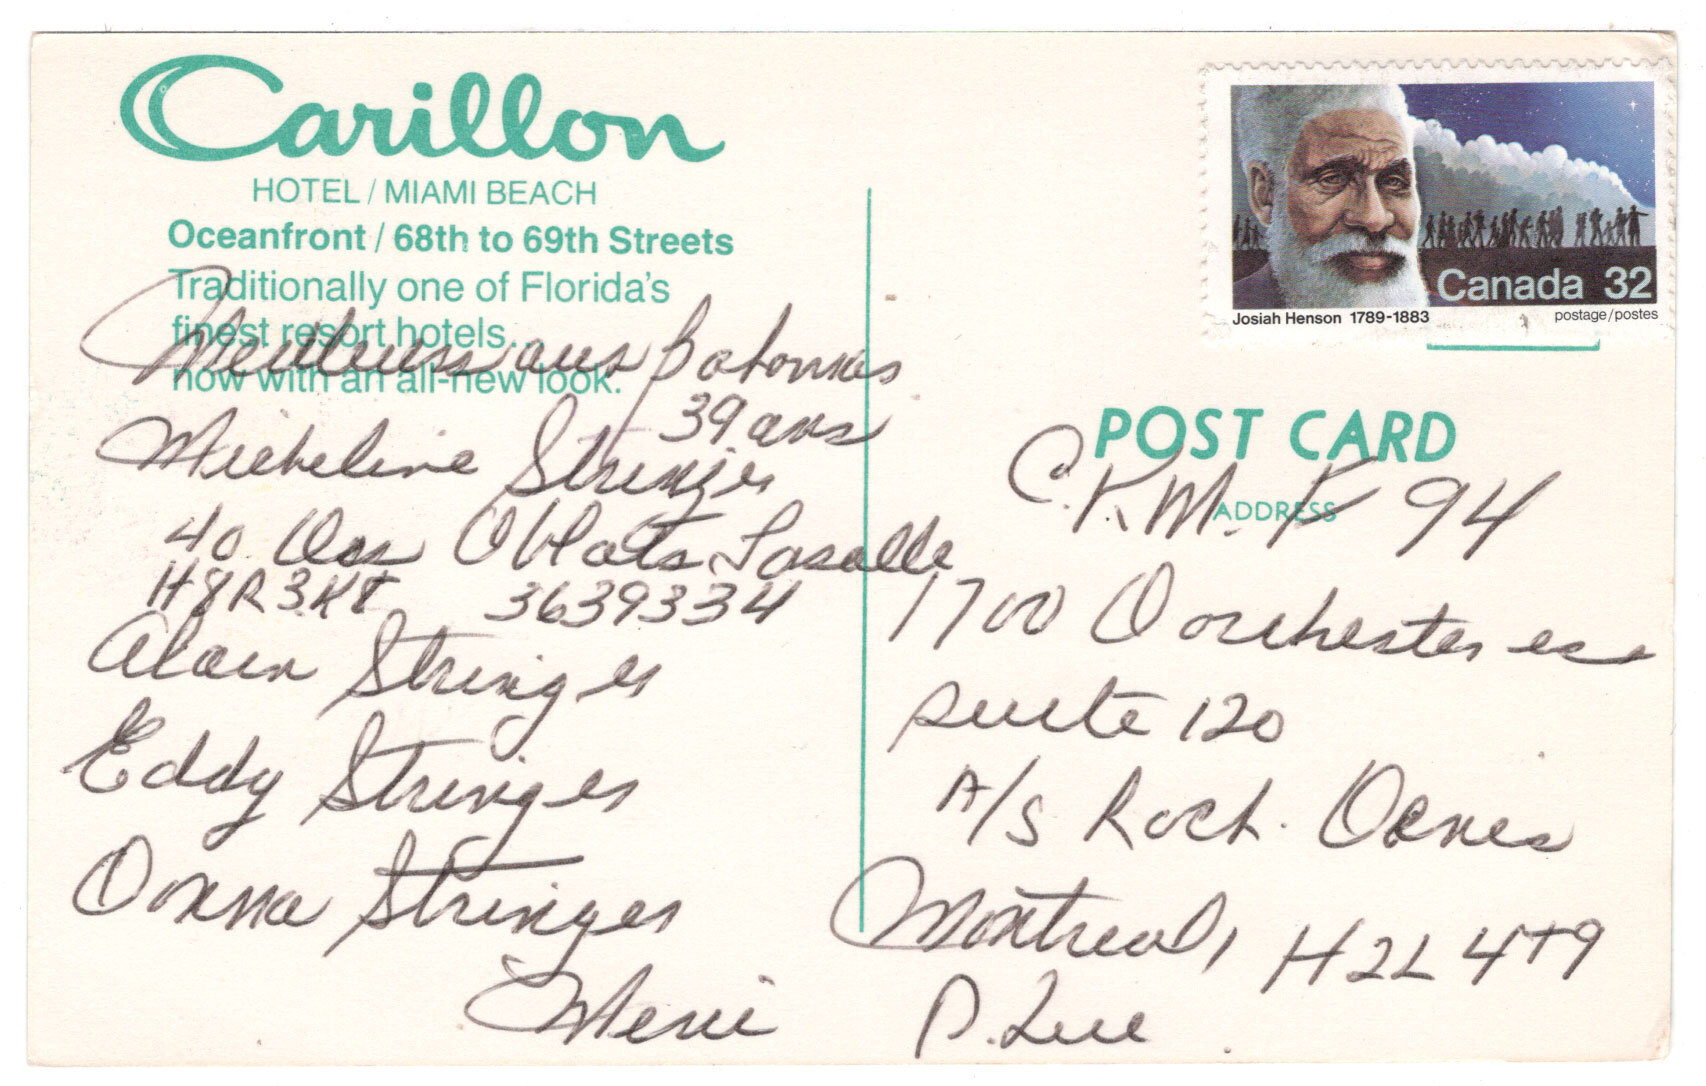 Carillon
HOTEL / MIAMI BEACH
Oceanfront / 68th to 69th Streets
Traditionally one of Florida's
finest resort hotels...
now with an all-new look.
aux Bahamas
39 ans
Micheline Stringer
40 Des Oblats Lasalle
H8R3K8 3639334
Alain Stringer
Eddy Stringer
Donna Stringer
Merci
Canada 32
Josiah Henson 1789-1883
postage/postes
POST CARD
ADDRESS
C.K.M.F 94
1700 Dorchester est
suite 120
A/S Roch Denis
Montreal, H2L 4T9
P. Que